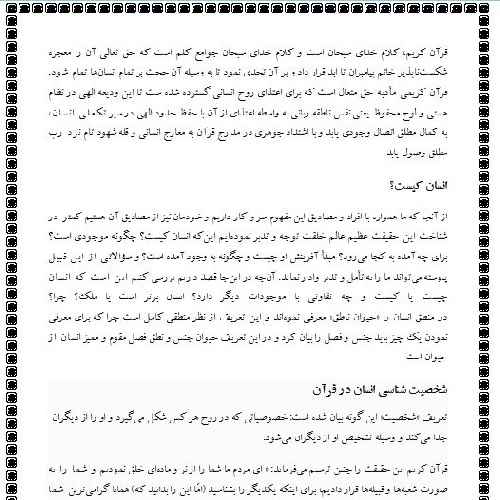 قرآن کریم، کلام خدای سبحان است و کلام خدای سبحان جوامع کلم است که حق تعالی آن را معجزه
شکست‌ناپذیر خاتم پیامبران تا ابد قرار داد و بر آن تحدی نمود تا به وسیله آن حجت بر تمام انسان‌ها تمام شود.
قرآن کریمی مأدبه حق متعال است که برای اغتذای روح انسانی گسترده شده است تا این ودیعه الهی در نظام
هستی و لوح محفوظ یعنی نفس ناطقه به واسطه اغتذای از آن با حفظ حدود الهی در مسیر تکاملی انسان،
به کمال مطلق اتصال وجودی یابد و با اشتداد جوهری در مدارج قرآن به معارج انسانی و قله شهود تام رب
مطلق وصول یابد.
انسان کیست؟
از آنجا که ما همواره با افراد و مصادیق این مفهوم سر و کار داریم و خودمان نیز از مصادیق آن هستیم کمتر در
شناخت این حقیقت عظیم عالم خلقت توجه و تدبر نموده‌ایم این‌که انسان کیست؟ چگونه موجودی است؟
برای چه آمده به کجا می‌رود؟ مبدأ آفرینش او چیست و چگونه به وجود آمده است؟ و سؤالاتی از این قبیل
پیوسته می‌تواند ما را به تأمل و تدبر وادار نماید. آن‌چه در این‌جا قصد داریم بررسی کنیم این است که انسان
چیست یا کیست و چه تفاوتی با موجودات دیگر دارد؟ انسان برتر است یا ملک؟ چرا؟
در منطق انسان را «حیوان ناطق» معرفی نموده‌اند و این تعریف از نظر منطقی کامل است چرا که برای معرفی
نمودن یک چیز باید جنس و فصل را بیان کرد و در این تعریف حیوان جنس و نطق فصل مقوم و ممیز انسان از
حیوان است
شخصیت شناسی انسان در قرآن
تعریف «شخصیت» این گونه بیان شده است: خصوصیاتی که در روح هر کس شکل می‌گیرد و او را از دیگران
جدا می‌کند و وسیله تشخیص او از دیگران می‌شود.
قرآن کریم این حقیقت را چنین ترسیم می‌فرماید: «ای مردم ما شما را از نر و ماده‌ای خلق نمودیم و شما را به
صورت شعبه‌ها و قبیله‌ها قرار دادیم، برای اینکه یکدیگر را بشناسید (اما این را بدانید که) همانا گرامی‌ترین شما